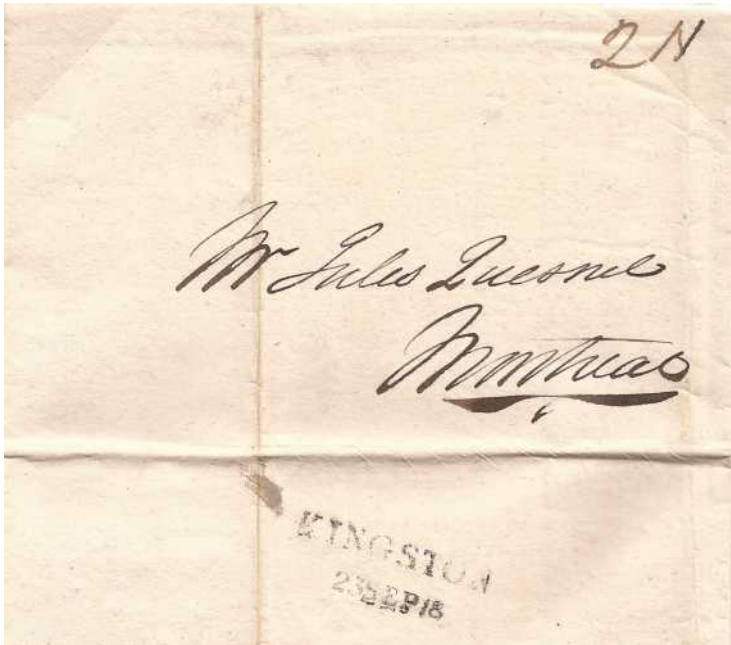 2N
Mr Jules Quesnel
Montreal
KINGSTON
23SEP18